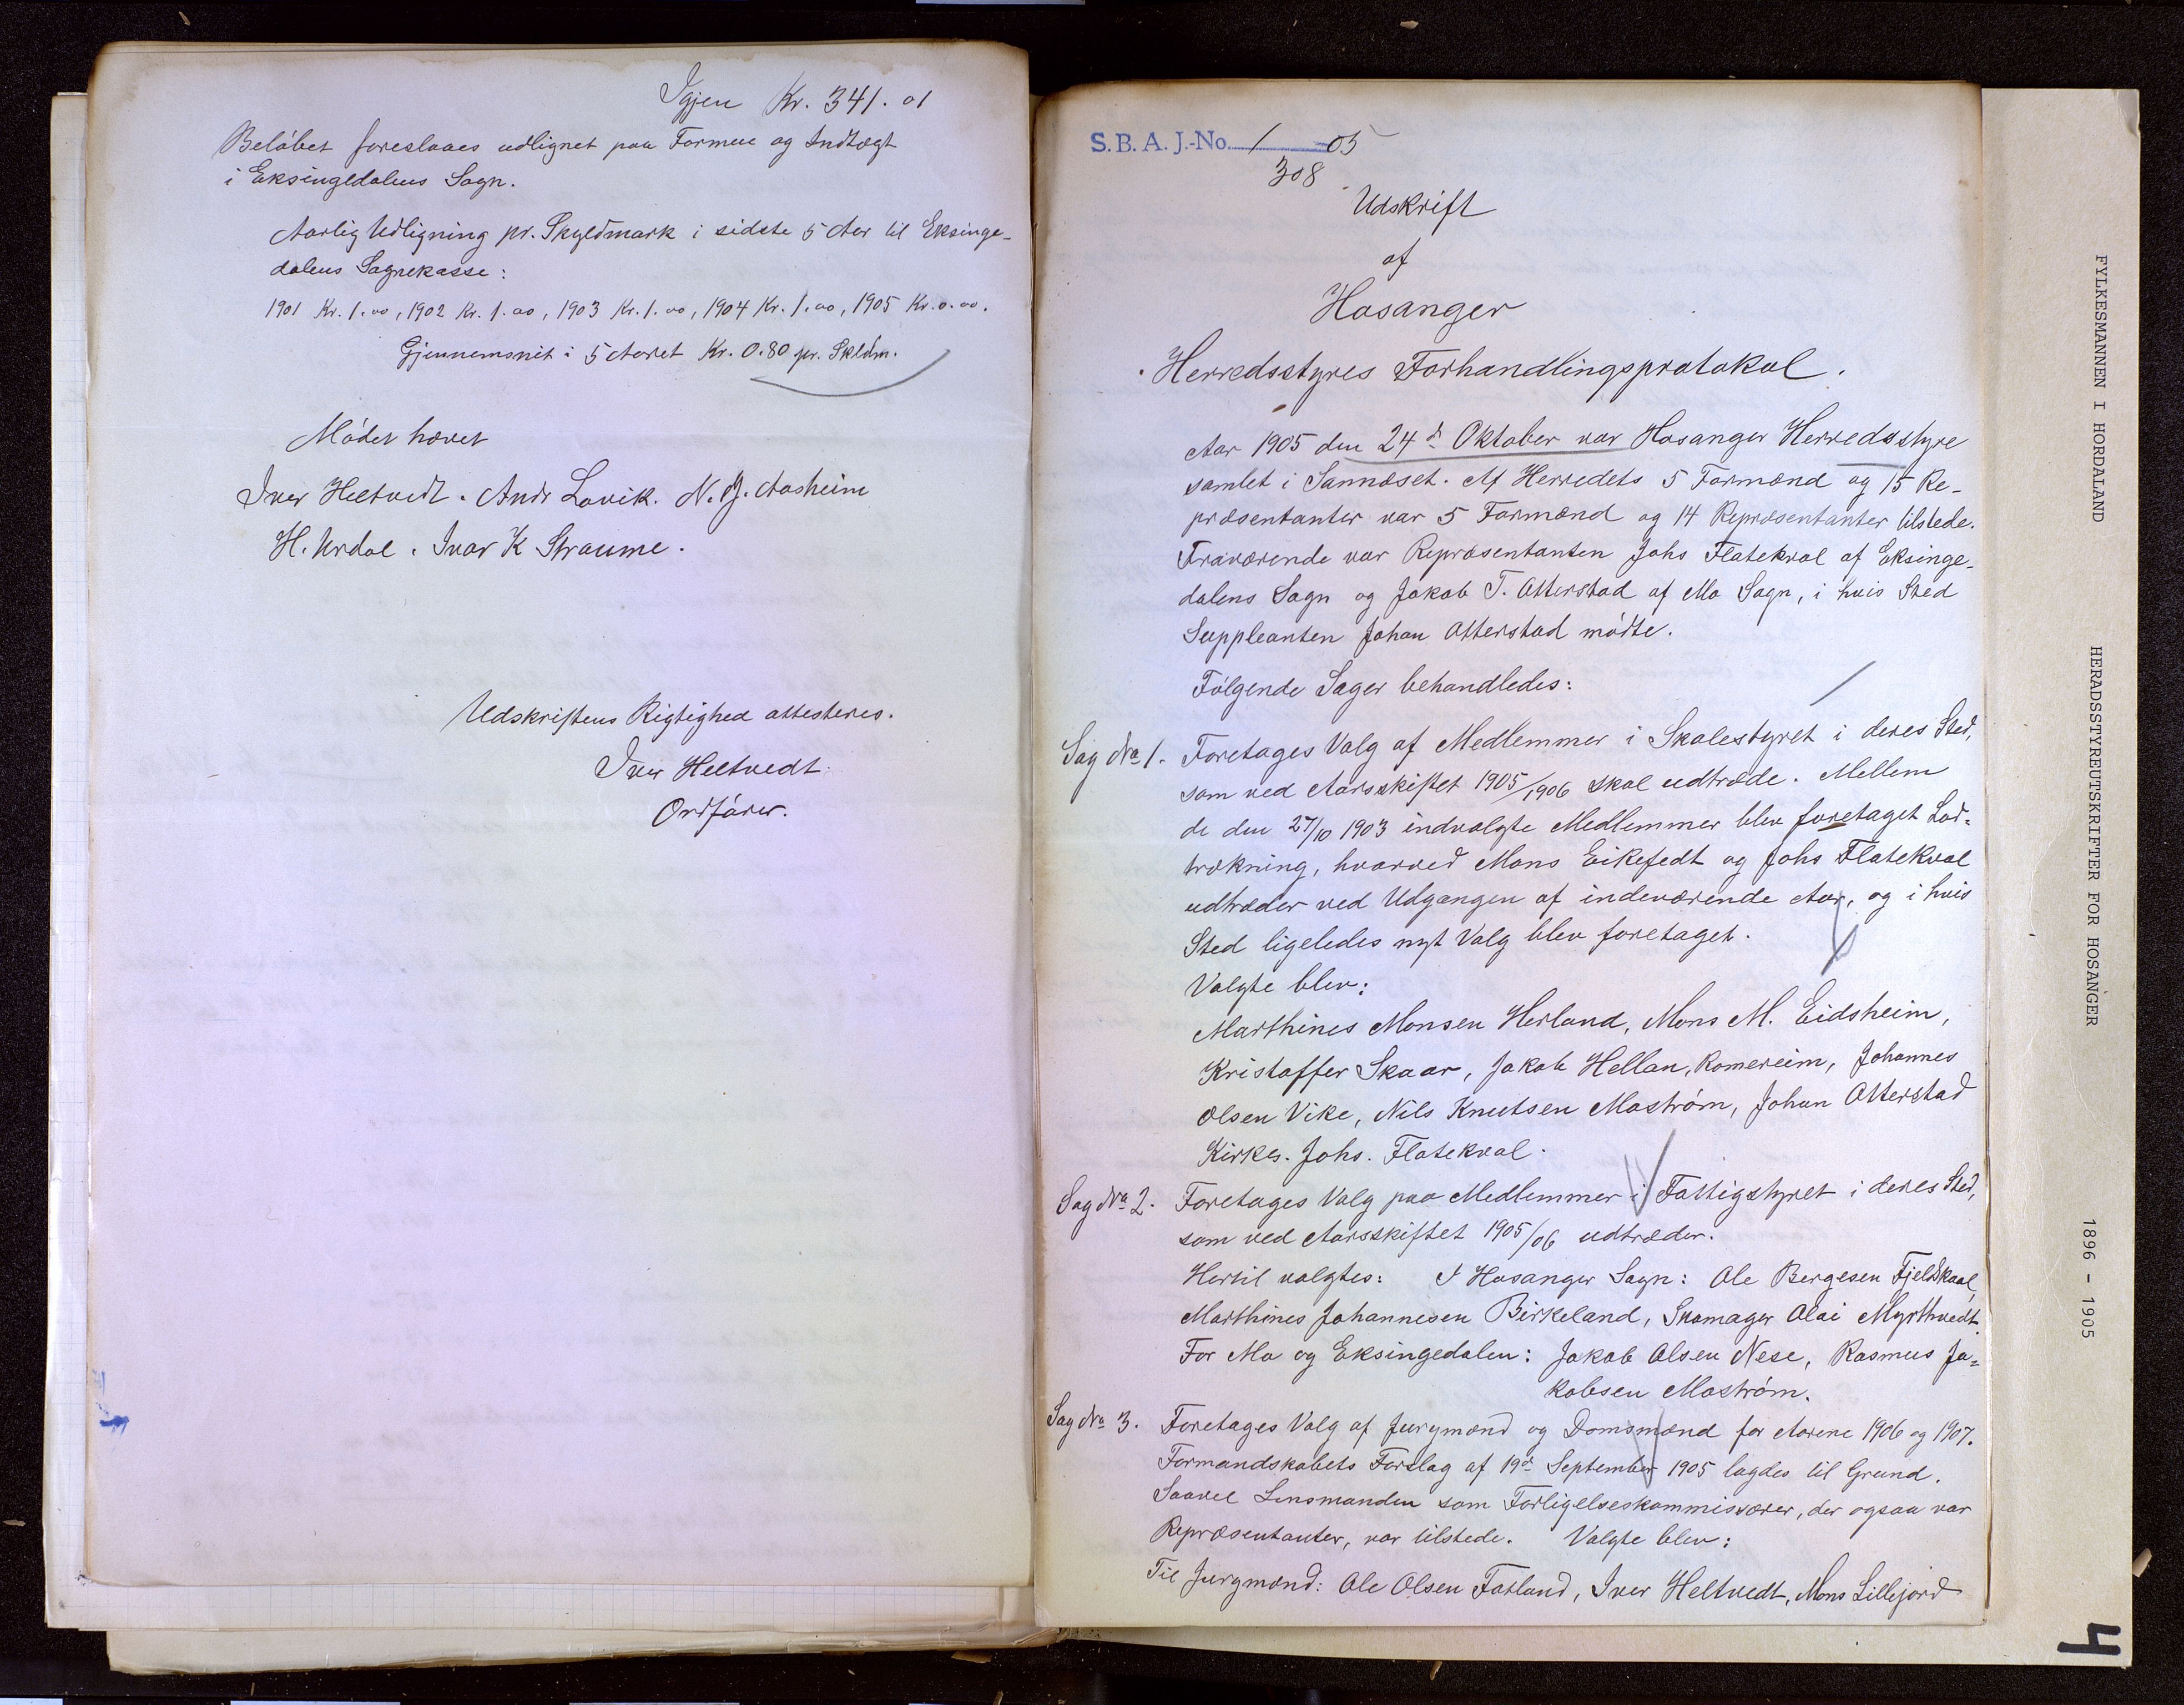 Igjen Kr. 341.01
Beløbet foreslaaes udlignet paa Formue og Indtægt
i Eksingedalens Sogn.
Aarlig Udligning pr. Skyldmark i sidste 5 Aar til Eksinge-
dalens Sognekasse:
1901 Kr. 1.00, 1902 Kr. 1.00, 1903 Kr. 1.00, 1904 Kr. 1.00, 1905 Kr. 0.00.
Gjennemsnit i 5 Aaret Kr. 0.80 pr. Skldm.
Mødet hævet
Iver Heltvedt. Andr Lavik. N. J. Aasheim
H. Urdal. Ivar K Straume.
Udskriftens Rigtighed attesteres.
Iver Heltvedt
Ordfører.
S.B.A. J.-No. 1 05
308
Udskrift
af
Hosanger
Herredsstyres Forhandlingsprotokol.
Aar 1905 den 24de Oktober var Hosanger Herredsstyre
samlet i Sannæset. Af Herredets 5 Formænd og 15 Re-
præsentanter var 5 Formænd og 14 Repræsentanter tilstede.
Fraværende var Repræsentanten Johs Flatekval af Eksinge-
dalens Sogn og Jakob T. Otterstad af Mo Sogn, i hvis Sted
Suppleanten Johan Otterstad mødte.
Følgende Sager behandledes:
Sag No 1. Foretages Valg af Medlemmer i Skolestyret i deres Sted,
som ved Aarsskiftet 1905/1906 skal udtræde. Mellem
de den 27/10 1903 indvalgte Medlemmer blev foretaget Lod-
trækning, hvorved Mons Eikefedt og Johs Flatekval
udtræder ved Udgangen af indeværende Aar, og i hvis
Sted ligeledes nyt Valg blev foretaget.
Valgte blev:
Marthines Monsen Herland, Mons M. Eidsheim,
Kristoffer Skaar, Jakob Hellan, Romereim, Johannes
Olsen Vike, Nils Knutsen Mostrøm, Johan Otterstad
Kirkes. Johs. Flatekval.
Sag No 2. Foretages Valg paa Medlemmer i Fattigstyret i deres Sted,
som ved Aarsskiftet 1905/06 udtræder.
Hertil valgtes: I Hosanger Sogn: Ole Bergesen Fjeldskaal,
Marthines Johannesen Birkeland, Skomager Olai Myrthvedt.
For Mo og Eksingedalen: Jakob Olsen Nese, Rasmus Ja-
kobsen Mostrøm.
Sag No 3. Foretages Valg af Jurymænd og Domsmænd for Aarene 1906 og 1907.
Formandskabets Forslag af 19de September 1905 lagdes til Grund.
Saavel Lensmanden som Forligelseskommissærer, der ogsaa var
Repræsentanter, var tilstede. Valgte blev:
Til Jurymænd: Ole Olsen Fatland, Iver Heltvedt, Mons Lillejord
FYLKESMANNEN I HORDALAND HERADSSTYREUTSKRIFTER FOR HOSANGER 1896 - 1905
4